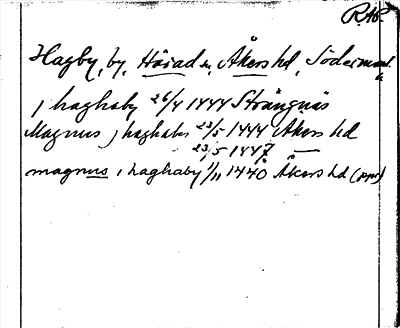 RAp.
Hagby, by, Härad sn, Åkers hd, Söderman
j haghaby 26/4 1444 Strängnäs
Magnus j haghaby 23/5 1444 Åkers hd
23/5 1447 —
magnus i haghaby 11/11 1440 Åkers hd (ppr)